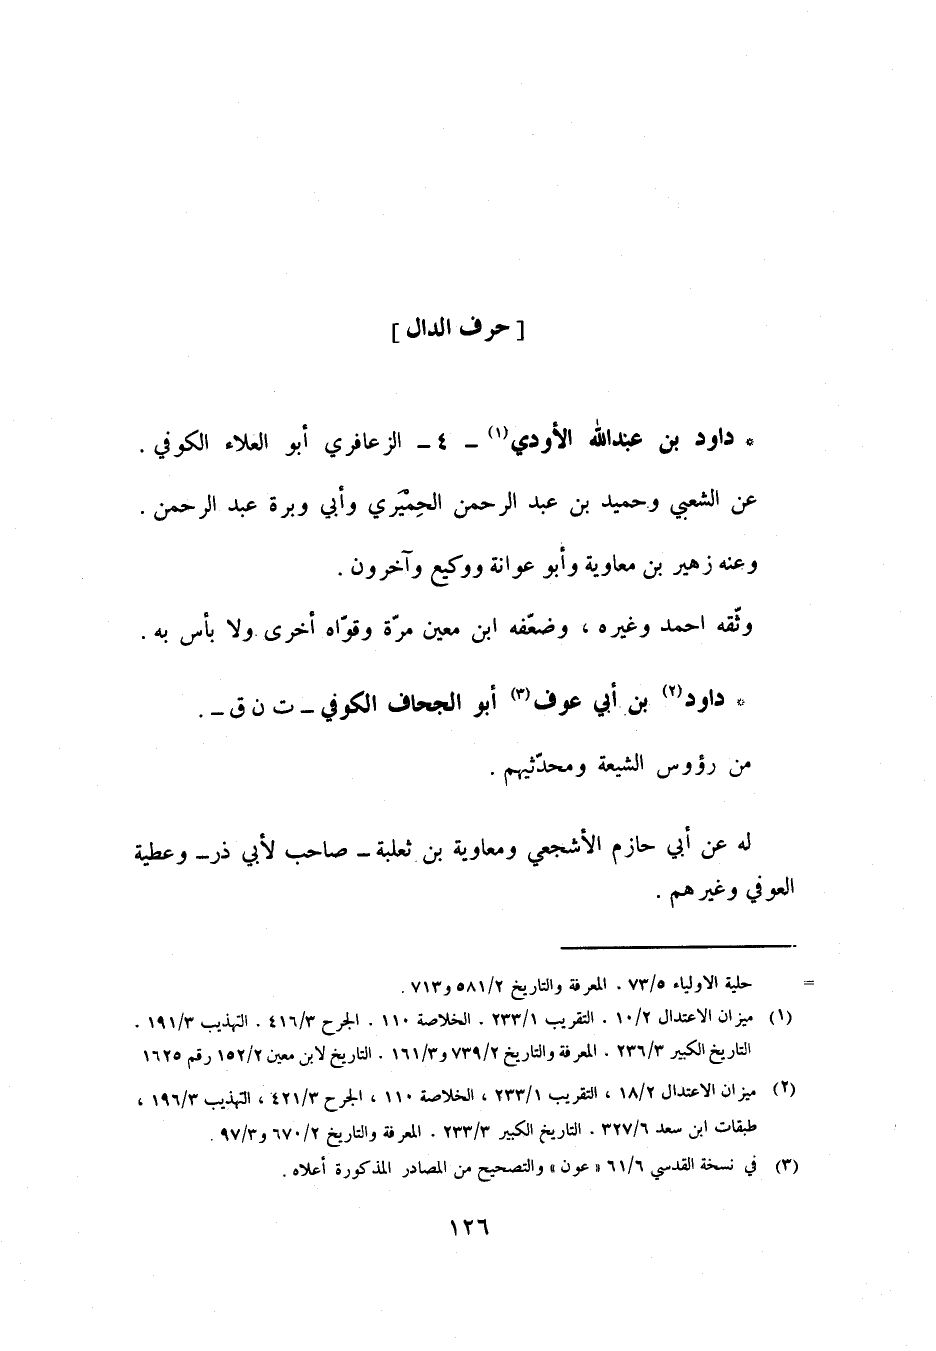 [ حرف الدال ]
* داود بن عبدالله الأودي(١) ـ ٤ ـ الزعافري أبو العلاء الكوفي .
عن الشعبي وحميد بن عبد الرحمن الحِمْيَري وأبي وبرة عبد الرحمن .
وعنه زهير بن معاوية وأبو عوانة ووكيع وآخرون .
وثّقه احمد وغيره ، وضعّفه ابن معين مرّة وقوّاه أخرى ولا بأس به .
* داود(٢) بن أبي عوف(٣) أبو الجحاف الكوفي ـ ت ن ق ـ .
من رؤوس الشيعة ومحدّثيهم .
له عن أبي حازم الأشجعي ومعاوية بن ثعلبة ـ صاحب لأبي ذر ـ وعطية
العوفي وغيرهم .
= حلية الاولياء ٧٣/٥ . المعرفة والتاريخ ٥٨١/٢ و٧١٣ .
(١) ميزان الاعتدال ١٠/٢ . التقريب ٢٣٣/١ . الخلاصة ١١٠ . الجرح ٤١٦/٣ . التهذيب ١٩١/٣ .
التاريخ الكبير ٢٣٦/٣ . المعرفة والتاريخ ٧٣٩/٢ و١٦١/٣ . التاريخ لابن معين ١٥٢/٢ رقم ١٦٢٥
(٢) ميزان الاعتدال ١٨/٢ ، التقريب ٢٣٣/١ ، الخلاصة ١١٠ ، الجرح ٤٢١/٣ ، التهذيب ١٩٦/٣ ،
طبقات ابن سعد ٣٢٧/٦ . التاريخ الكبير ٢٣٣/٣ . المعرفة والتاريخ ٦٧٠/٢ و٩٧/٣ .
(٣) في نسخة القدسي ٦١/٦ « عون » والتصحيح من المصادر المذكورة أعلاه .
١٢٦